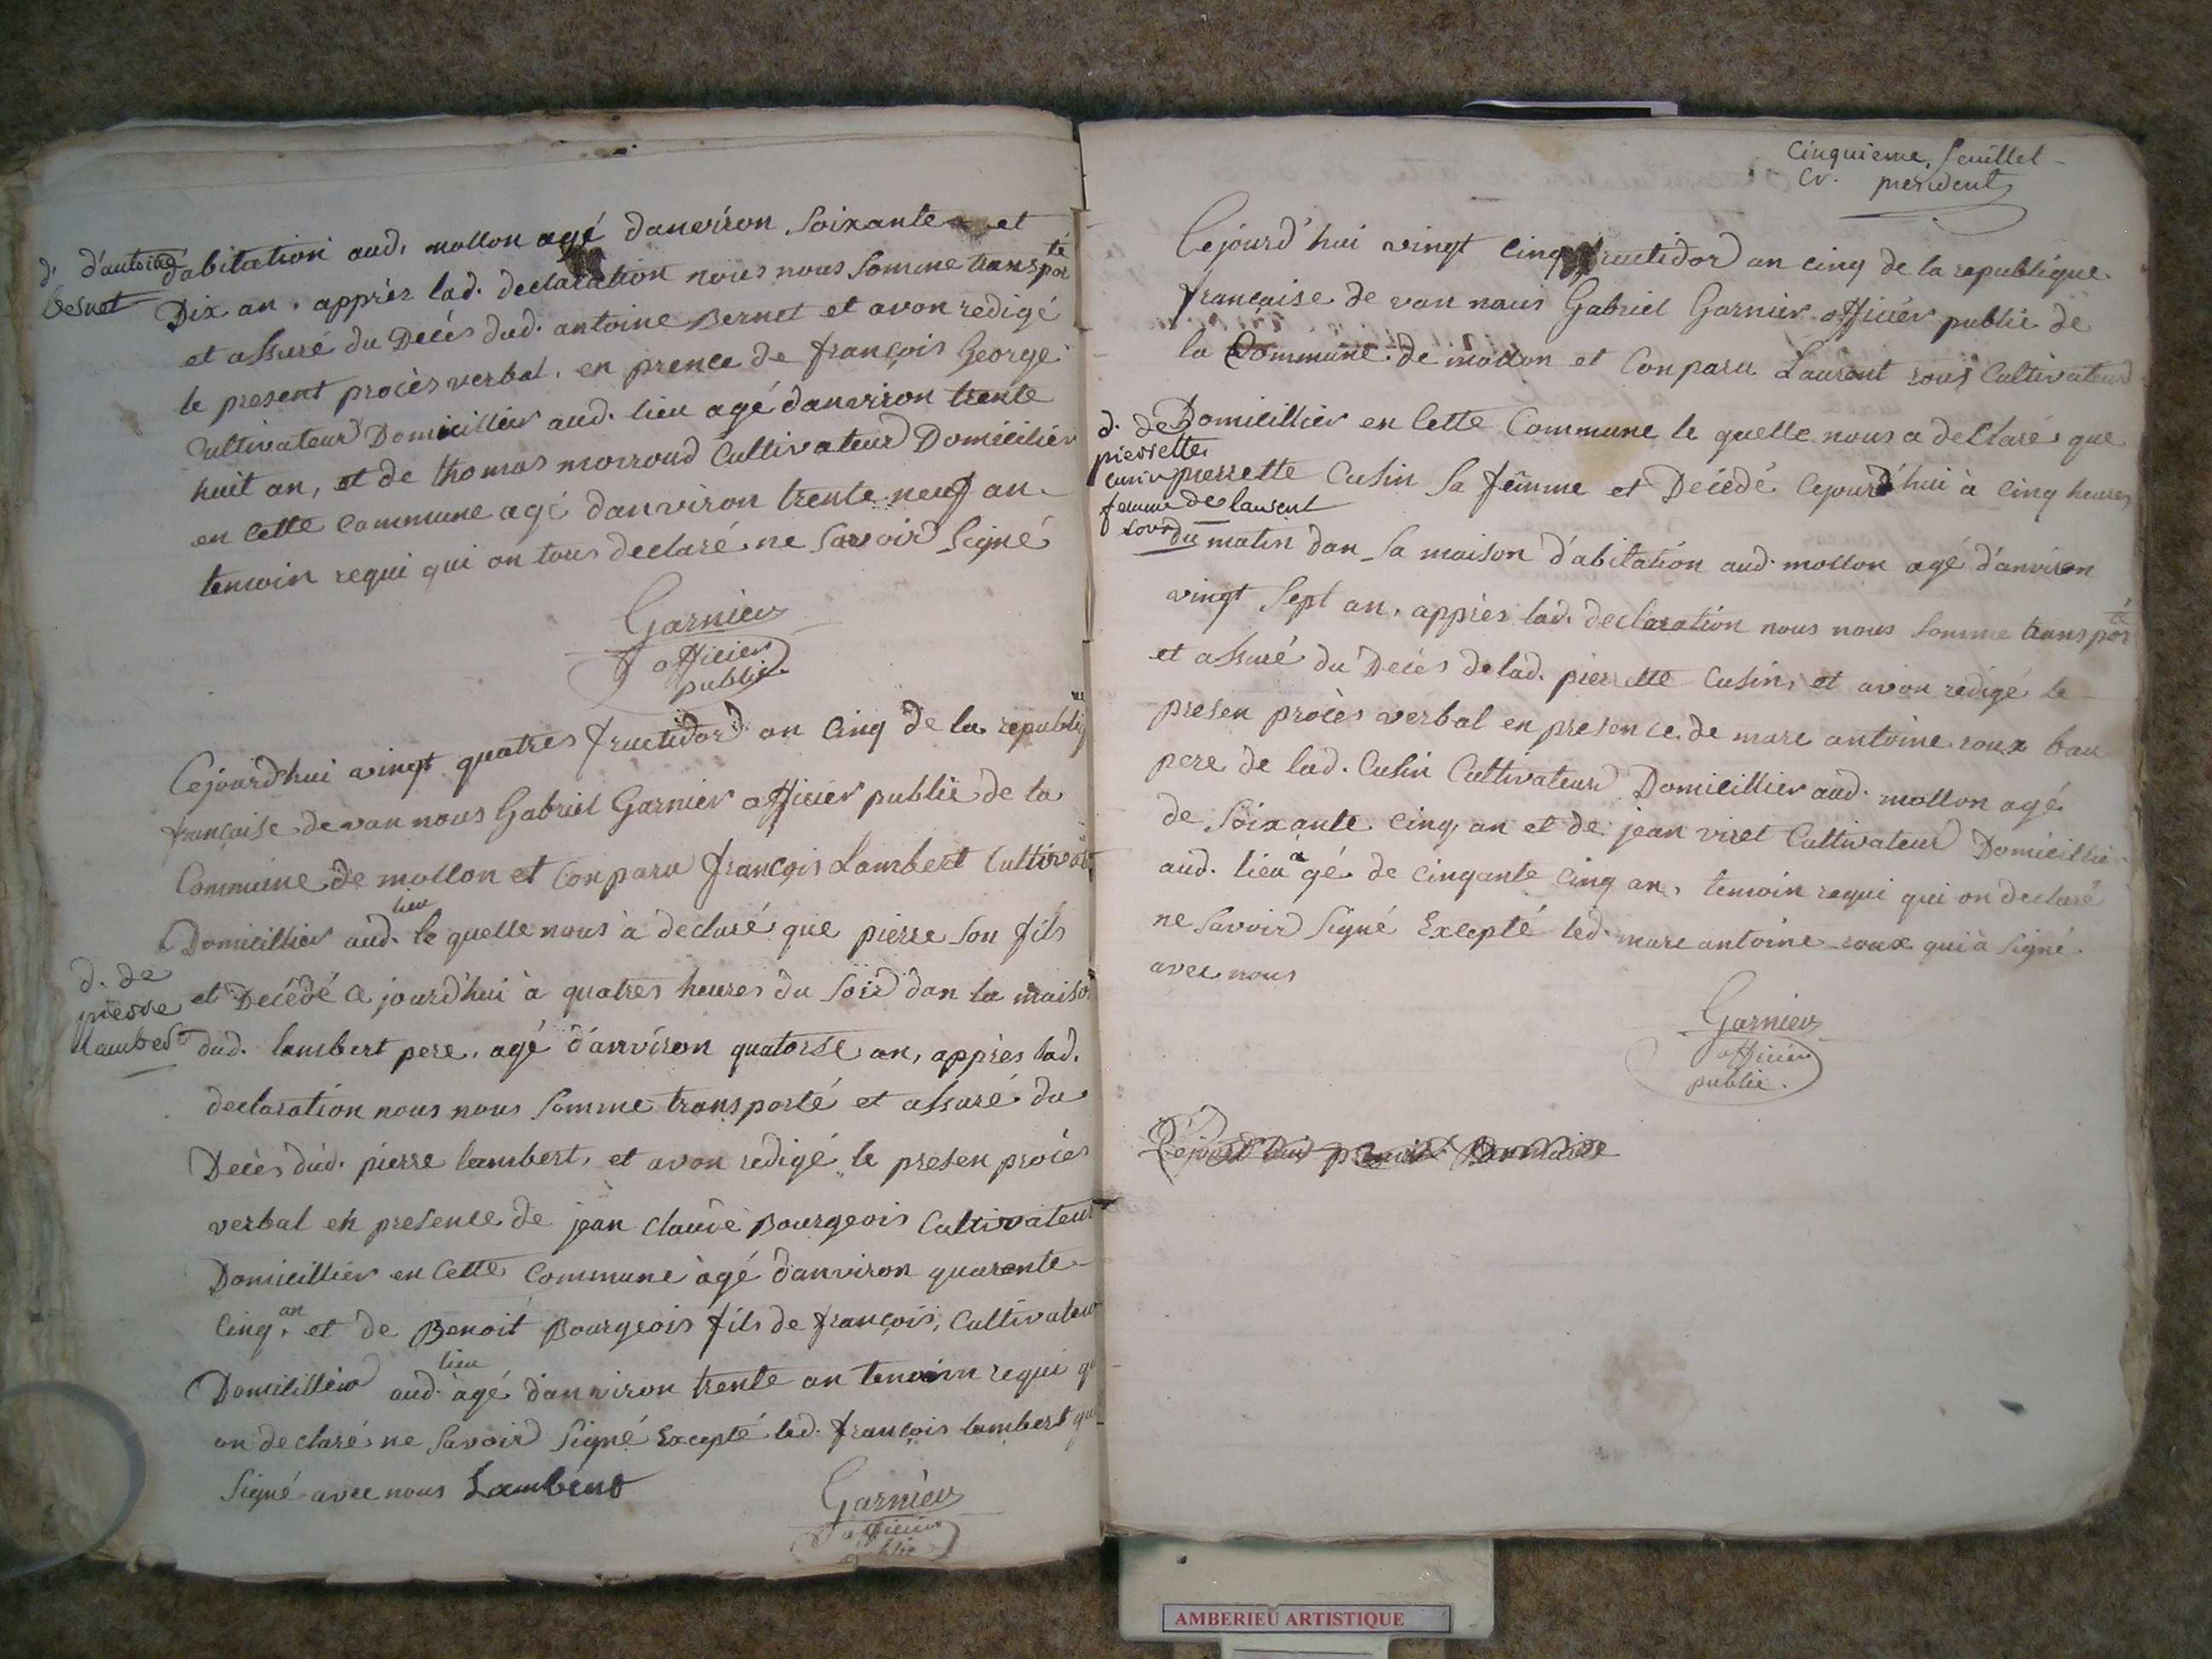 d. d'antoine
Bernet
d'abitation aud. mollon agé danviron soixante et
Dix an. apprès lad. declaration nous nous somme transporté
et assuré du Decés dud. antoine Bernet et avon redigé
le present procès verbal. en prence de françois George
Cultivateur Domicillier aud. lieu agé danviron trente
huit an, et de thomas morroud Cultivateur Domicilier
en cette commune agé danviron trente neuf an
temoin requi qui on tous declaré ne savoir signé
Garnier
officier
public.
Cejourd'hui vingt quatres fructidor an Cinq de la republique
française devan nous Gabriel Garnier officier public de la
Commune de mollon et Conparu françois Lambert Cultivat
Domicillier aud. lieu le quelle nous à declaré que pierre son fils
d. de
pierre
lambert
et Decédé ce jourd'hui à quatres heures du soir dan la maison
dud. lambert pere. agé d'anviron quatorse an, apprès lad.
declaration nous nous somme transporté et assuré du
Decès dud. pierre lambert, et avon redigé le presen procès
verbal en presence de jean claude Bourgeois Cultivateur
Domicillier en Cette Commune àgé danviron quarente
Cinq an, et de Benoit Bourgeois fils de françois, Cultivateur
Domicillier aud. lieu àgé danviron trente an temoin requi qui
on declaré ne savoir signé Excepté led. françois lambert qui
signé avec nous Lambert
Garnier
officier
public
Cinquieme feuillet
Cv. president
Cejourd'hui vingt Cinq fructidor an cinq de la republique
française de van nous Gabriel Garnier officier public de
la Commune de mollon et Conparu Laurent roux Cultivateur
d. de
pierrette
cusin
femme de laurent
roux
Domicillier en Cette Commune le quelle nous a declaré que
pierrette Cusin sa fêmme et Decédé Cejourd'hui à cinq heures
du matin dan sa maison d'abitation aud. mollon agé d'anviron
vingt sept an. apprès lad. declaration nous nous somme transporté
et assuré du Decès de lad. pierrette Cusin, et avon redigé le
presen procès verbal en presence de marc antoine roux bau
pere de lad. Cusin Cultivateur Domicillier aud. mollon agé
de soixante cinq an et de jean viret Cultivateur Domicillier
aud. lieu agé de cinqante Cinq an, temoin requi qui on declaré
ne savoir signé Excepté led. marc antoine roux qui à signé
avec nous
Garnier
officier
public.
Cejourd'hui
AMBERIEU ARTISTIQUE